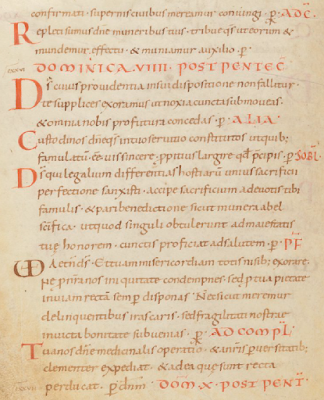 confirmati · supernis civibus mereamur coniungi · p̲ · ADC̅
Repleti sumus dn̅e muneribus tuis · tribue qs̅ ut eorum &
mundemur effectu · & muniamur auxilio · p̲
DOMINICA VIIII · POST PENTEC̅
D̅s cuius providentia in sui dispositione non fallitur ·
te supplices exoramus ut noxia cuncta submoveas ·
& omnia nobis profutura concedas · p̲ · ALIA ·
Custodi nos dn̅e qs̅ in tuo servitio constitutos · ut quib;
famulatum ee̅ vis sincere · p̲pitius largire quod p̲cipis · p̲ SUPER OBL̅
D̅s qui legalium differentias hostiarum unius sacrificii
perfectione sanxisti · accipe sacrificium a devotis tibi
famulis · & pari benedictione sicut munera abel
sc̅ifica · ut quod singuli obtulerunt ad maiestatis
tuę honorem · cunctis proficiat ad salutem · p̲ · PF̅
VD aeterne d̅s · Et tuam misericordiam totis nisib; exorare ·
ne p̲ nr̅a iniquitate condempnes · sed p̲ tua pietate
in viam rectam semp̲ disponas · Nec sicut meremur
delinquentibus irascaris · sed fragilitati nostrae
invicta bonitate subvenias · p̲ · AD COMPL̅
Tua nos dn̅e medicinalis operatio · & a nr̅is p̲versitatib;
clementer expediat · & ad ea quę sunt recta
perducat · p̲ dn̅m · DOM · X · POST PENT̅